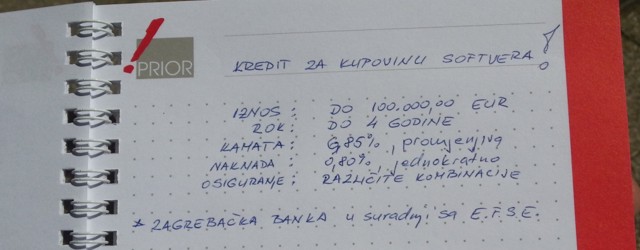 ! PRIOR
KREDIT ZA KUPOVINU SOFTVERA!
IZNOS: DO 100.000,00 EUR
ROK: DO 4 GODINE
KAMATA: 6,85%, promjenjiva
NAKNADA: 0,80%, jednokratno
OSIGURANJE: RAZLIČITE KOMBINACIJE
* ZAGREBAČKA BANKA u suradnji sa E.F.S.E.